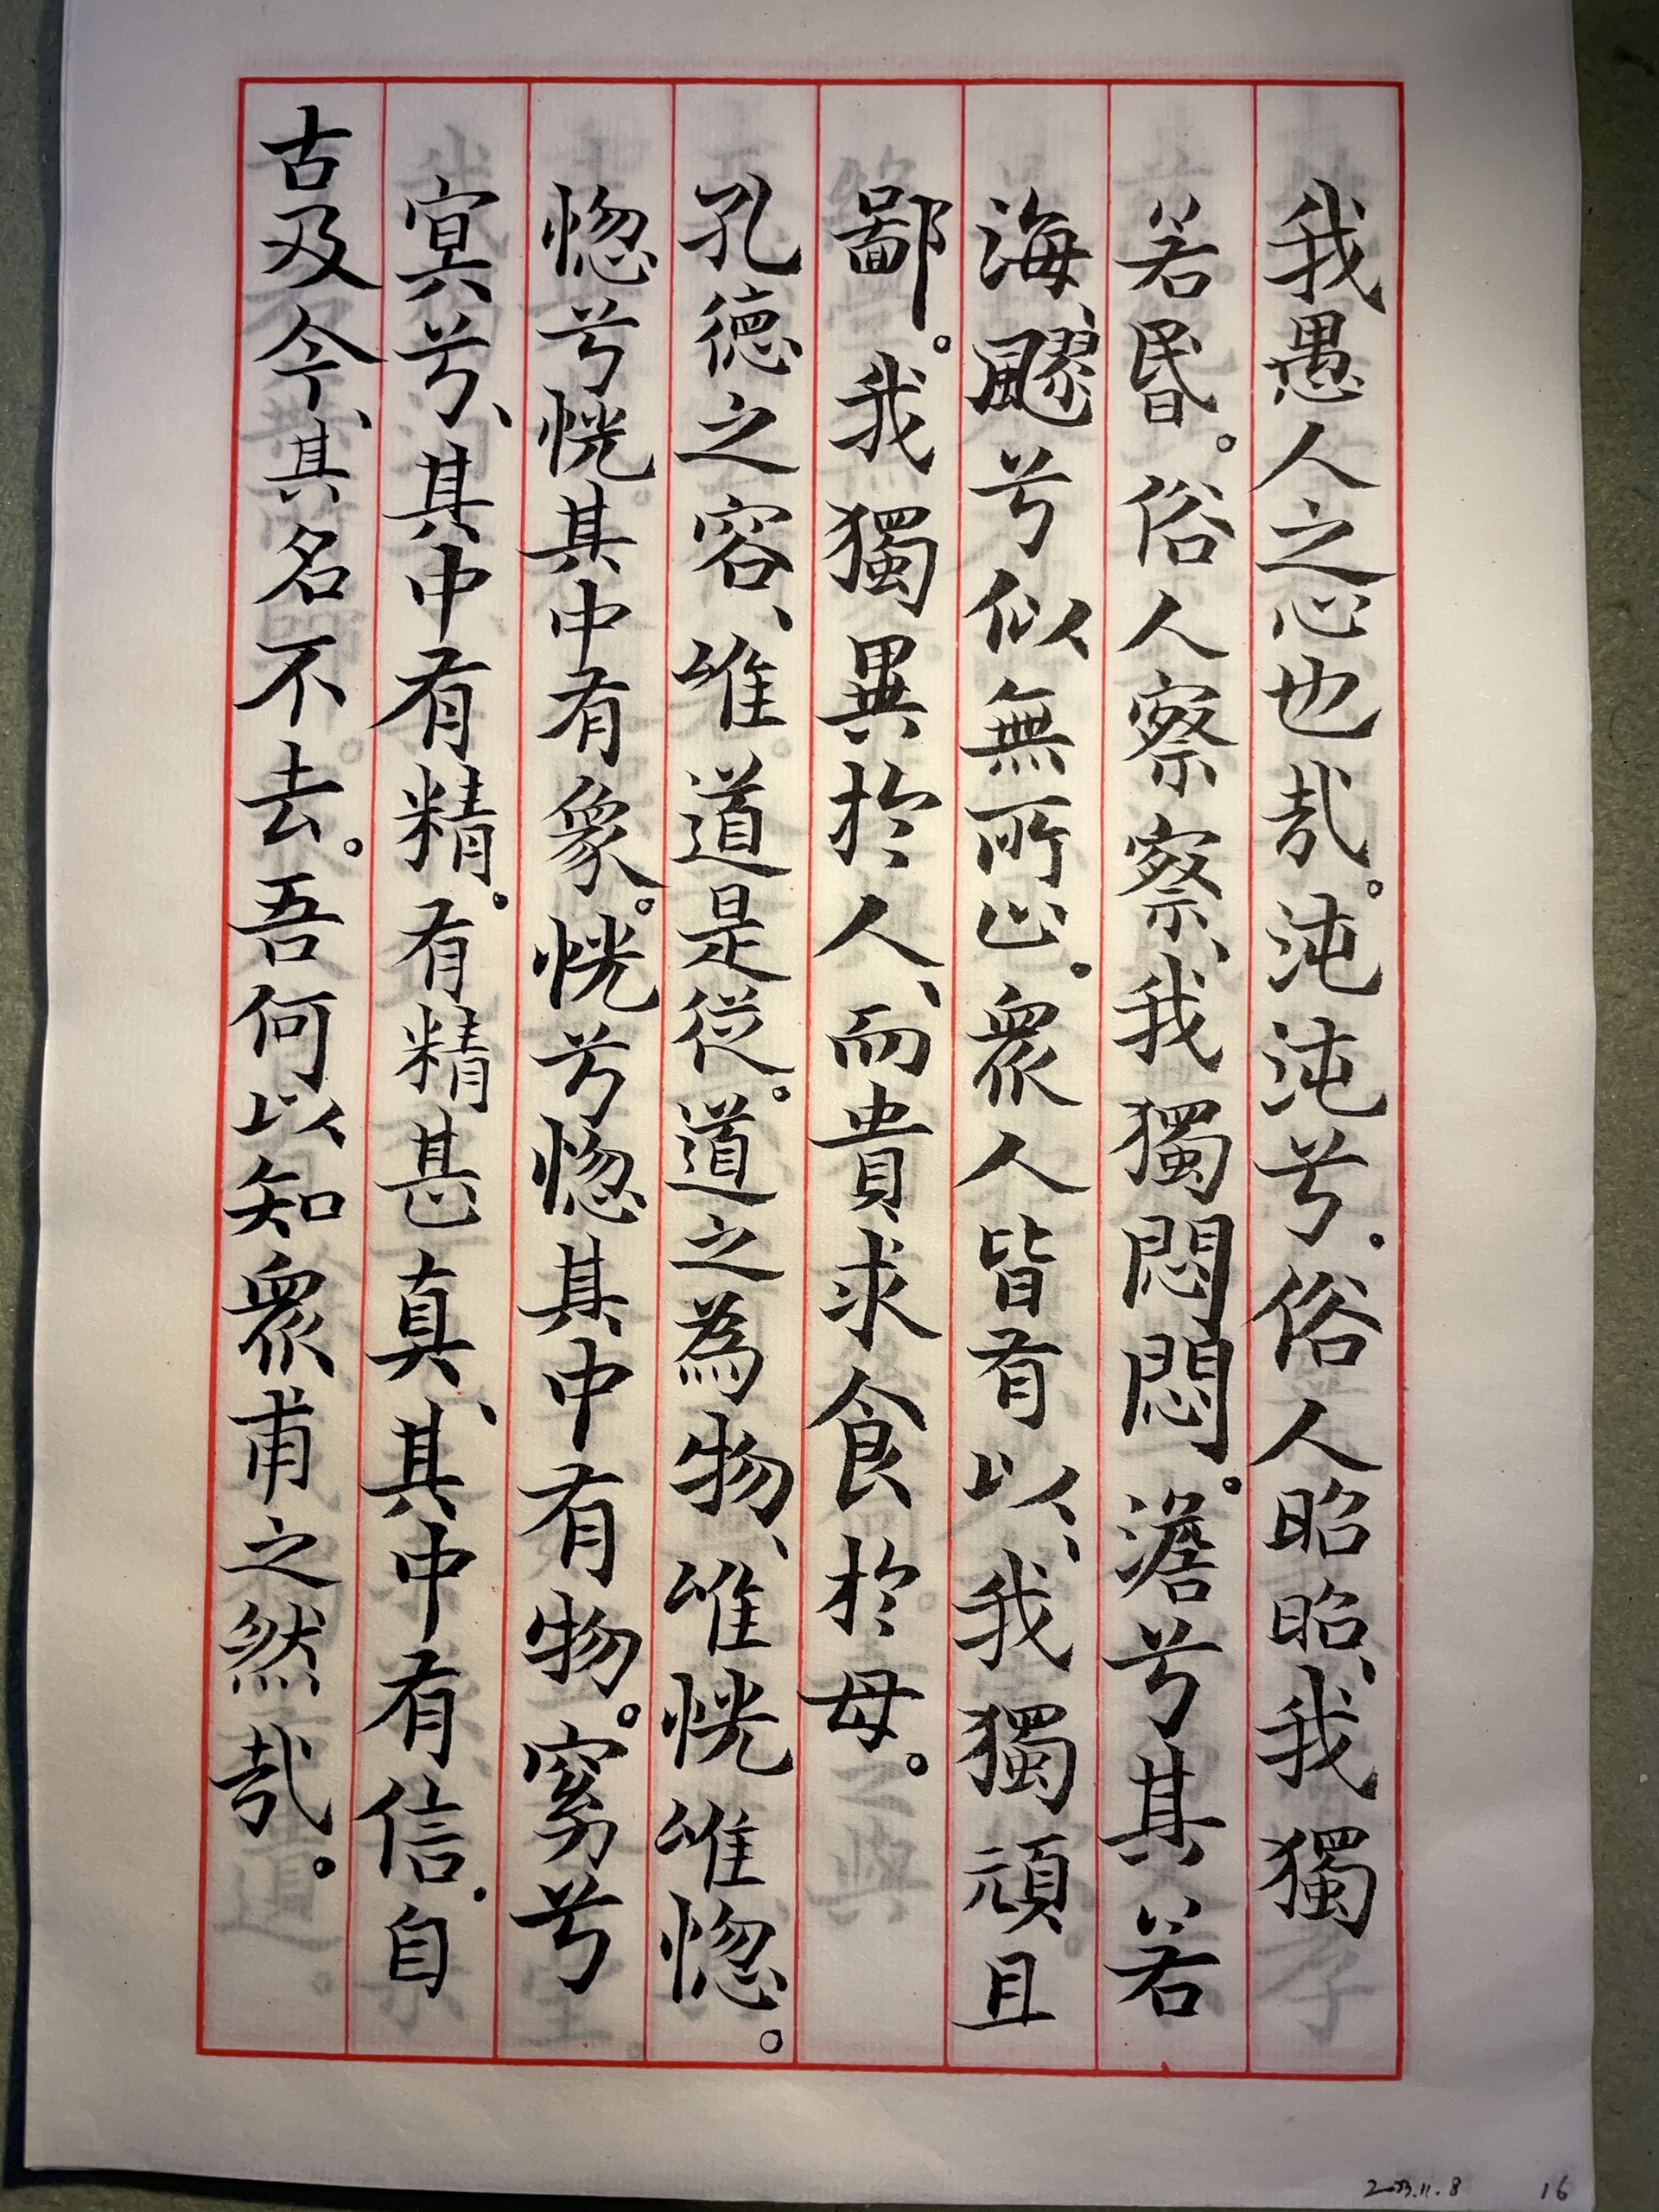 我愚人之心也哉。沌沌兮.俗人昭昭、我獨
若昏。俗人察察、我獨悶悶。澹兮其若
海、飂兮似無所止。衆人皆有以、我獨頑且
鄙。我獨異於人、而貴求食於母。
孔德之容、唯道是從。道之為物、唯恍唯惚。
惚兮恍其中有象。恍兮惚其中有物。窈兮
冥兮、其中有精。有精甚真、其中有信.自
古及今、其名不去。吾何以知衆甫之然哉。
2023.11.8 16